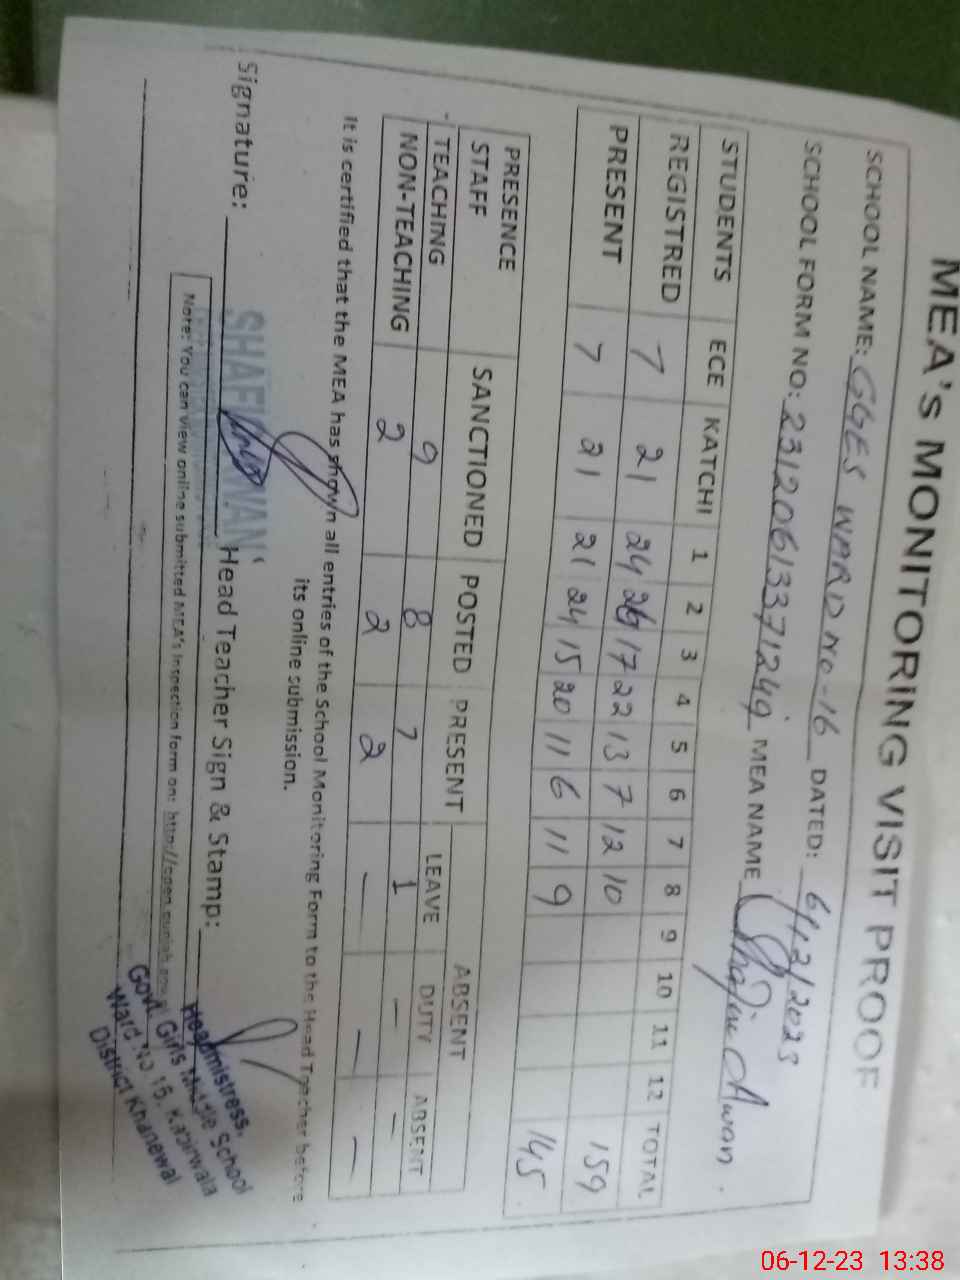 MEA'S MONITORING VISIT PROOF
SCHOOL NAME: GGES WARD No-16 DATED: 6/12/2023
SCHOOL FORM NO: MEA NAME Awan.
STUDENTS ECE KATCHI 1 2 3 4 5 6 7 8 9 10 11 12 TOTAL
REGISTRED 7 21 24 26 17 22 13 7 12 10 159
PRESENT 7 21 21 24 15 20 11 6 11 9 145
PRESENCE SANCTIONED POSTED PRESENT ABSENT
STAFF LEAVE DUTY ABSENT
TEACHING 9 8 7 1 — —
NON-TEACHING 2 2 2 — — —
It is certified that the MEA has shown all entries of the School Monitoring Form to the Head Teacher before
its online submission.
Signature: Head Teacher Sign & Stamp:
Note: You can view online submitted MEA's Inspection form on:
Headmistress,
Govt. Girls Middle School
Ward No 16, Kabirwala
District Khanewal
06-12-23 13:38